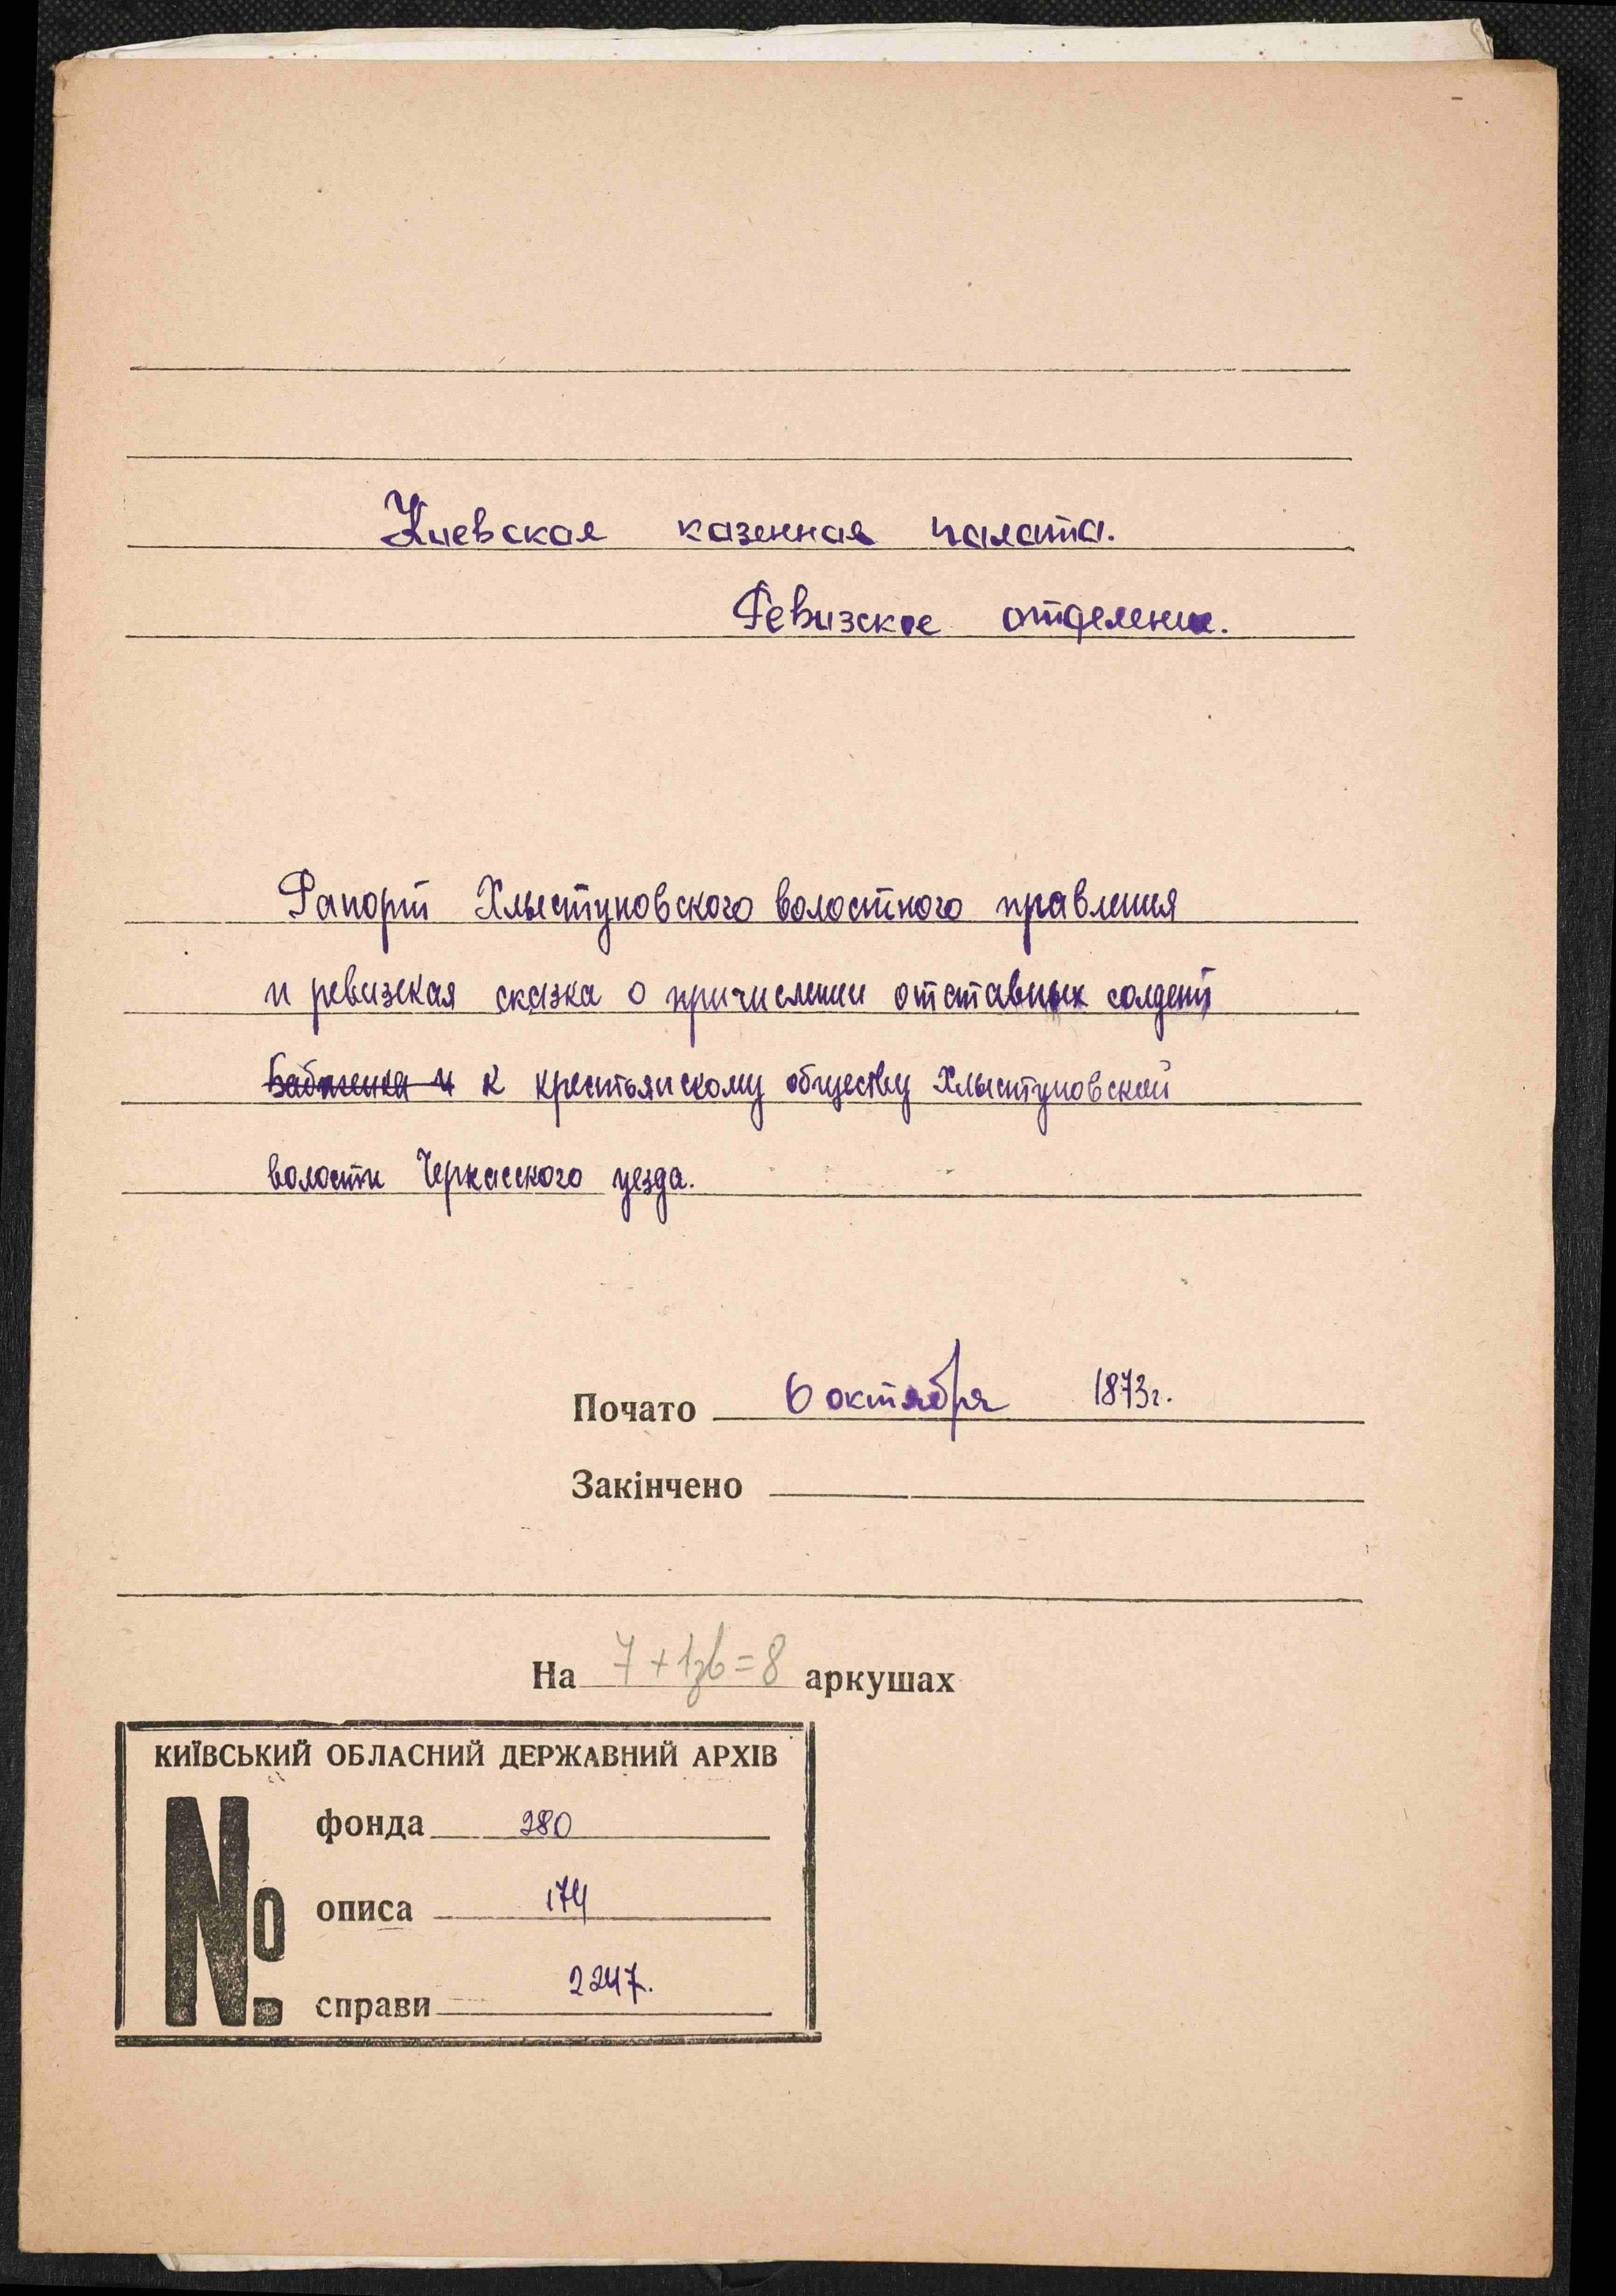 Киевская казенная палата.
Ревизское отделение.
Рапорт Хлыстуновского волостного правления
и ревизская сказка о причислении отставных солдат
к крестьянскому обществу Хлыстуновской
волости Черкасского уезда.
Почато 6 октября 1873г.
Закінчено
На 7+1зв=8 аркушах
КИЇВСЬКИЙ ОБЛАСНИЙ ДЕРЖАВНИЙ АРХІВ
№
фонда 280
описа 174
справи 2247.